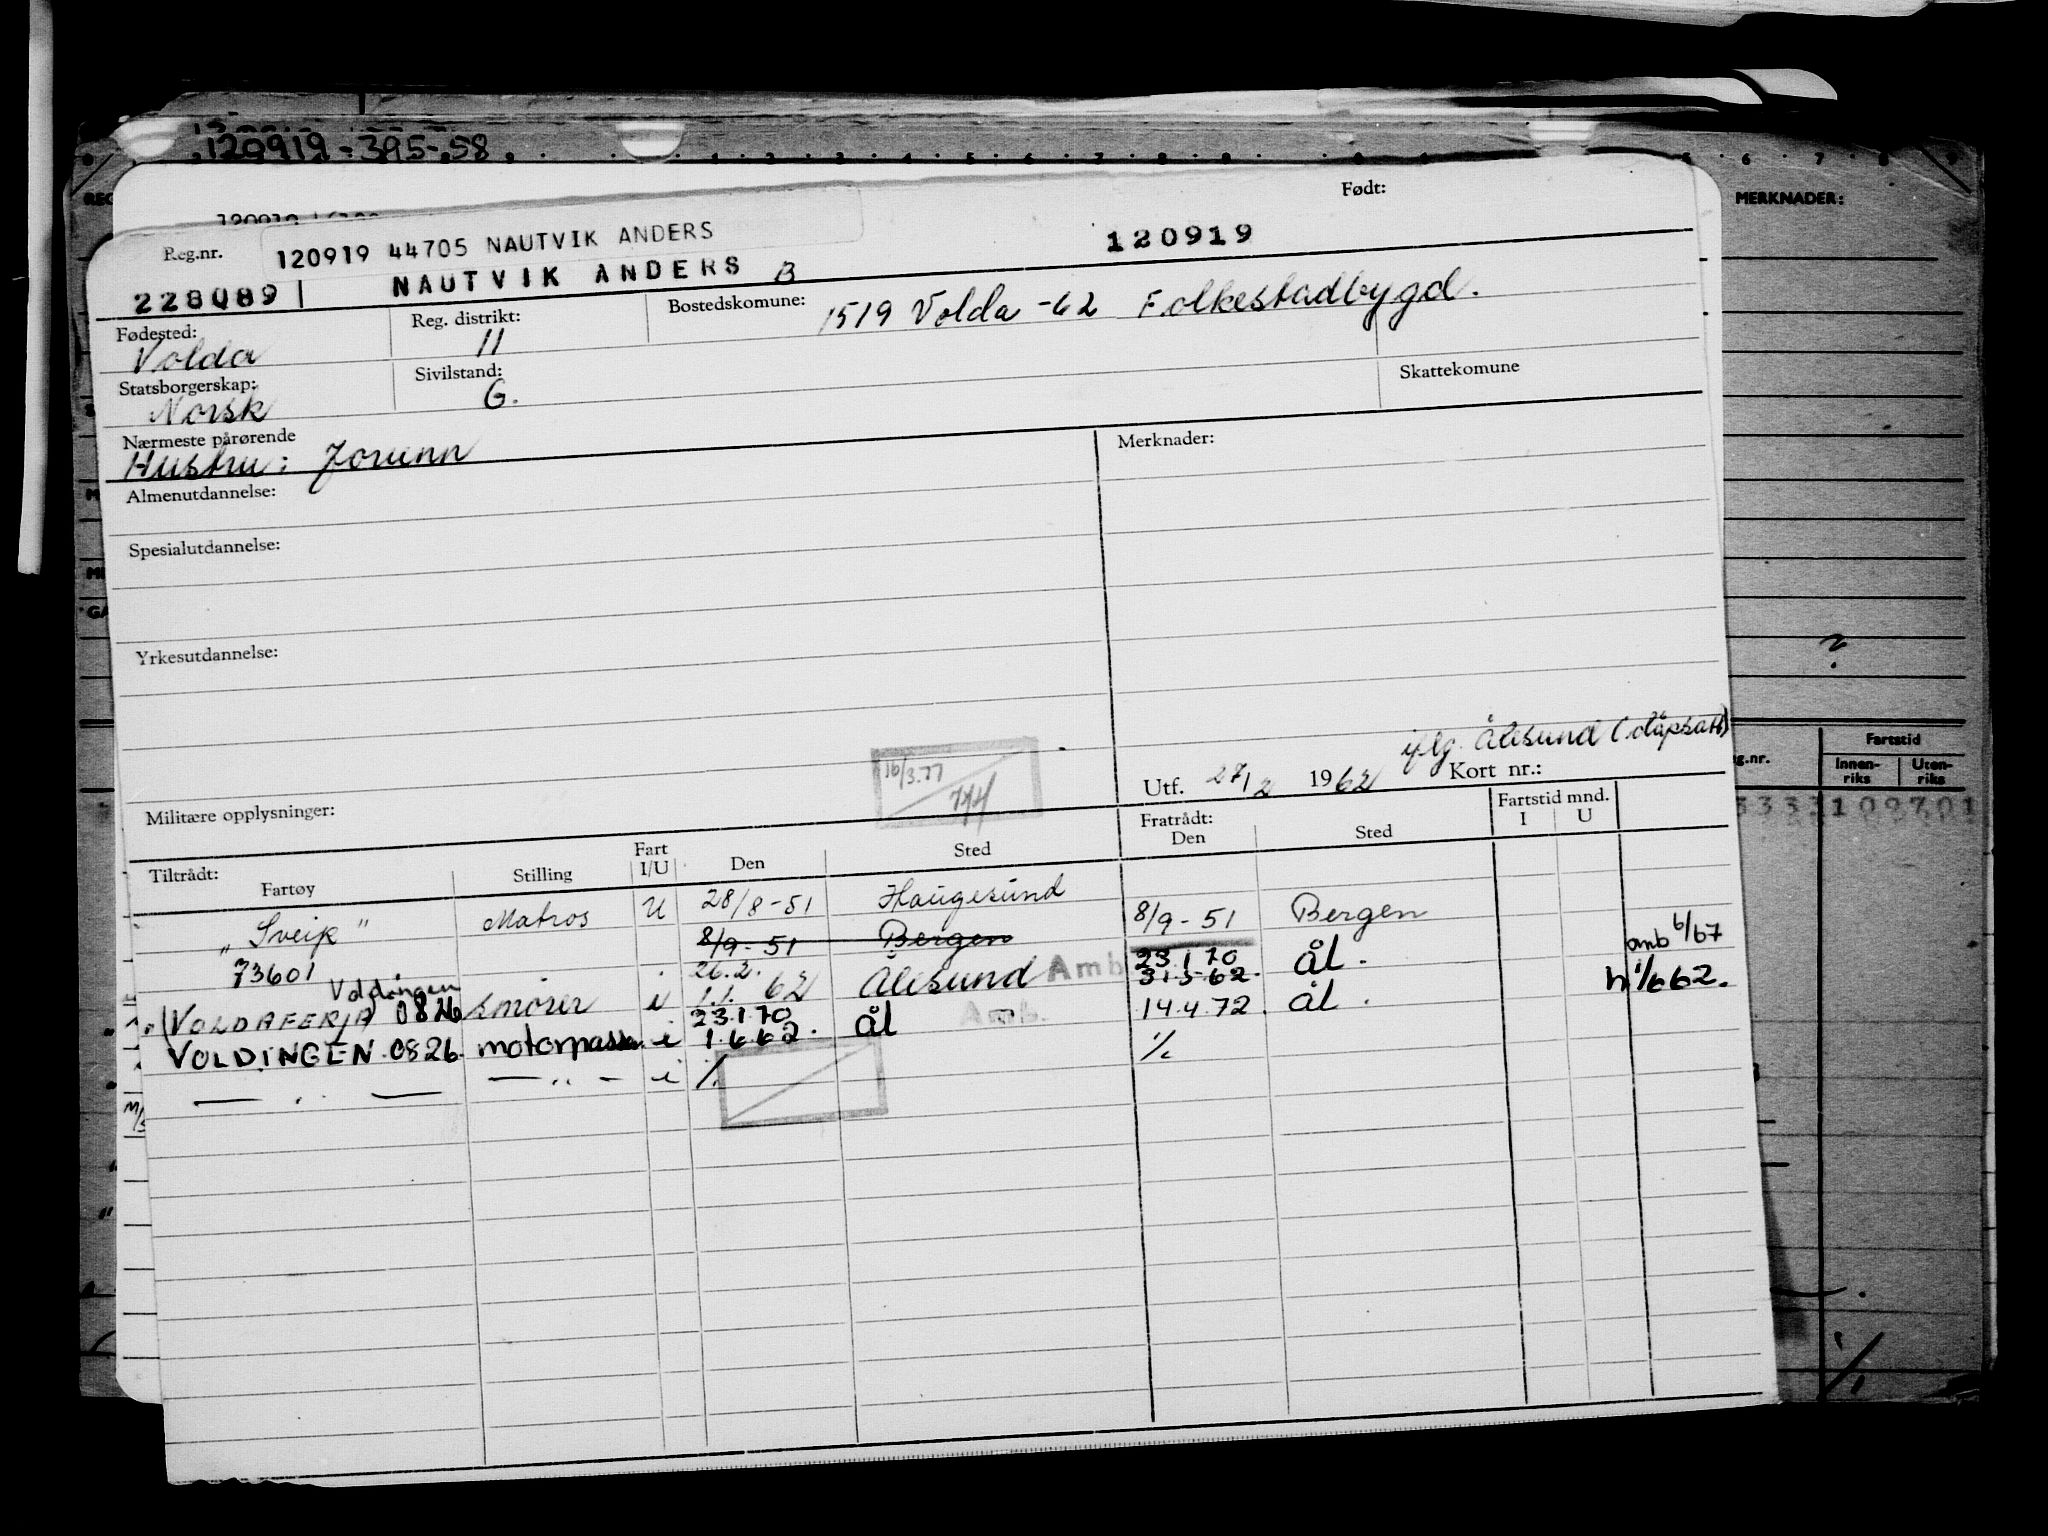 120919-395-58
MERKNADER:
Født:
Reg.nr.
120919 44705 NAUTVIK ANDERS
120919
228089 NAUTVIK ANDERS B
Fødested: Reg. distrikt: Bostedskomune: 1519 Volda -62 Folkestadbygd.
Volda 11
Statsborgerskap: Sivilstand: Skattekomune
Norsk G.
Nærmeste pårørende Merknader:
Hustru: Jorunn
Almenutdannelse:
Spesialutdannelse:
Yrkesutdannelse:
?
iflg. Ålesund
16/3.77
Utf. 27/2 1962 Kort nr.:
Militære opplysninger:
Fartstid
Innen-riks Uten-riks
Tiltrådt: Fart Fratrådt: Fartstid mnd.
Fartøy Stilling I/U Den Sted Den Sted I U
"Sveip" Matros U 28/8-51 Haugesund 8/9-51 Bergen
73601 8/9-51 Bergen
Voldingen 26.2. 23.1.70 amb 6/67
(VOLDAFERJA 0826 smører i 1.1. 62 Ålesund Amb 31.5.62. ål.
VOLDINGEN 0826 motorpass. i 23.1.70 Amb. 14.4.72. ål.
1.6.62. ål
— „ — — „ — i %. %